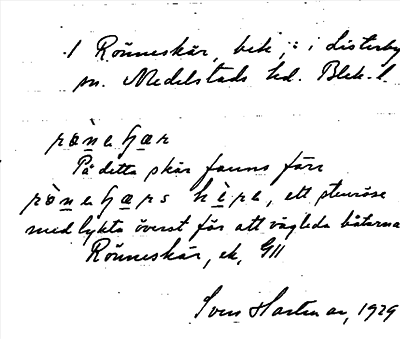 1 Rönneskär, bek, : i Listerby
sn. Medelstads hd. Blek. l.
rònehær
På detta skär fanns förr
rònehærs kìpa, ett stenröse
med lykta överst för att vägleda båtarna
Rönneskär, ek, G11
Sven Hartman, 1929